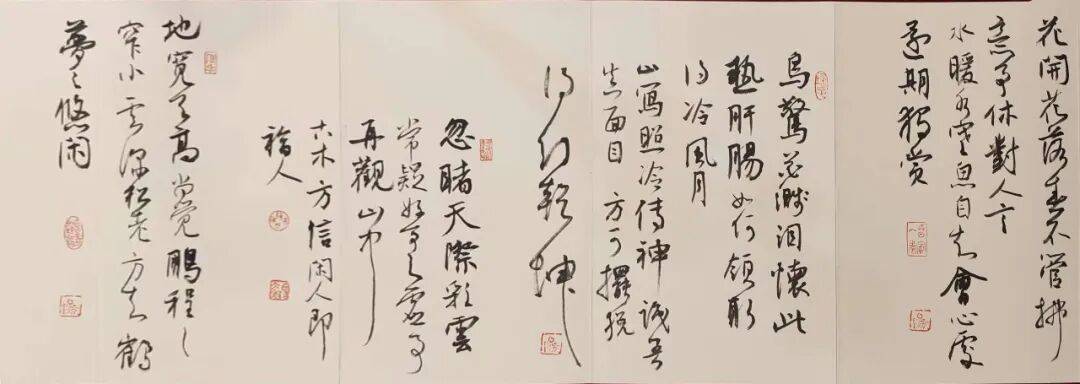 花開花落春不管拂
意事休對人言
水暖水寒魚自知會心處
還期獨賞
鳥驚花濺泪懷此
熱肝腸如何領取
得冷風月
山寫照水傳神識吾
真面目方可擺脱
得幻乾坤
忽睹天際彩雲
常疑好事皆虛事
再觀山中
古木方信閑人即
福人
地寬天高尚覺鵬程之
窄小雲深松老方知鶴
夢之悠閑